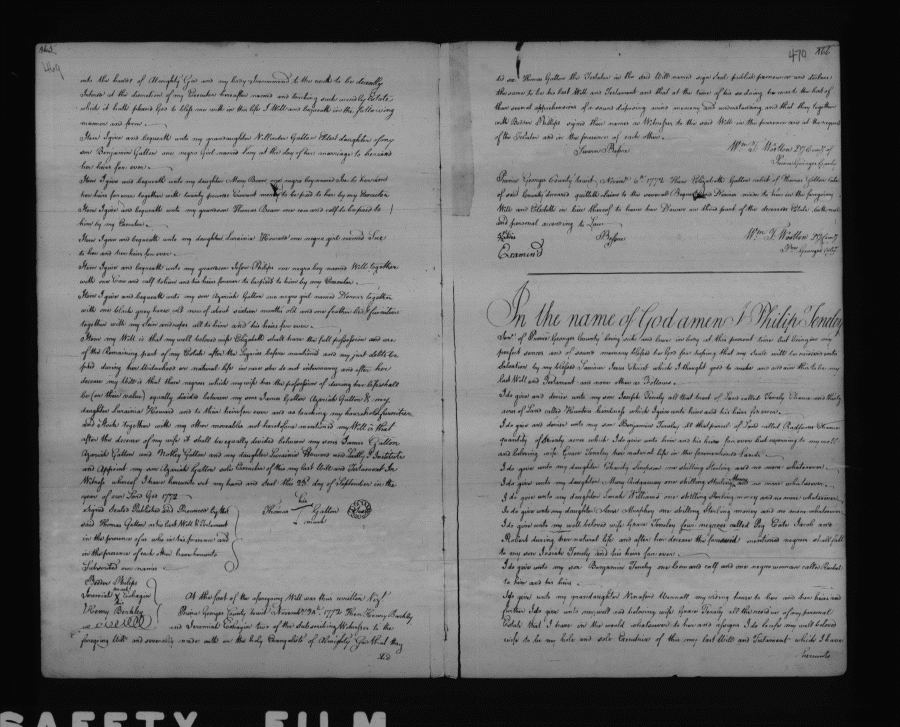 469
into the hands of Almighty God and my body I recommend to the earth to be decently
Intered at the discretion of my Executor hereafter named and touching such worldly Estate
which it hath pleased God to bless me with in this life I Will and bequeath in the following
manner and form
Item I give and bequeath unto my granddaughter Gallon Eldest daughter of my
son Benjamin Gallon one negro Girl named at the day of her marriage to her and
her heirs for ever
Item I give and bequeath unto my daughter Mary Beaver one negro boy named to her and
her heirs forever together with twenty pounds Current money to be paid to her by my Executor
Item I give and bequeath unto my grandson Thomas Beaver one cow and calf to be paid to
him by my Executor
Item I give and bequeath unto my daughter Lurainia Howard one negro girl named
to her and her heirs for ever
Item I give and bequeath unto my grandson Philips one negro boy named Will together
with one Cow and calf to him and his heirs forever to be paid to him by my Executor
Item I give and bequeath unto my son Azariah Gallon one negro girl named Dinner together
with one black grey horse old now of about sixteen months old and one feather bed & furniture
together with my all to him and his heirs for ever
Item my Will is that my well beloved wife Elizabeth shall have the full possession and use
of the Remaining part of my Estate after the Legacies before mentioned and my just debts be
paid during her Widowhood or natural life in case she do not intermarry and after her
decease my Will is that those negroes which my wife has the possession of during her life shall
be (or their value) equally divided between my son James Gallon Azariah Gallon & my
daughter Lurainia Howard and to their heirs for ever and as touching my household furniture
and Stock together with my other moveables not heretofore mentioned my Will is that
after the decease of my wife it shall be equally divided between my sons James Gallon
Azariah Gallon and Notley Gallon and my daughter Lurainia Howard and Lastly I Institute
and Appoint my son Azariah Gallon sole Executor of this my last Will and Testament In
Witness whereof I have hereunto set my hand and Seal this 28th day of September in the
year of our Lord God 1772
Signed Sealed Published and Pronounced by the
said Thomas Gallon as his last Will & Testament
in the presence of us who in his presence and
in the presence of each other have hereunto
Subscribed our names
Thomas his mark Gallon
Bedder Philips
Jeremiah his mark
Henry Barkley
At the foot of the aforegoing Will was thus written Viz
Prince Georges County to wit November 1772 Then Henry Barkley
and Jeremiah two of the subscribing Witnesses to the
foregoing Will and severally made oath on the holy Evangelists of Almighty God that they
did
470
did see Thomas Gallon the Testator in the said Will named sign Seal publish pronounce and declare
the same to be his last Will and Testament and that at the time of his so doing he was to the best of
their several apprehensions of a sound disposing mind memory and understanding and that they together
with Bedder Philips signed their names as Witnesses to the said Will in the presence and at the request
of the Testator and in the presence of each other
Sworn Before
Wm T. Wootton D Comy of
Prince Georges County
Prince Georges County to wit Novemr 6th 1772 Then Elizabeth Gallon relict of Thomas Gallon late
of said County deceased quitted claim to the several Bequests and Devises made to her in the foregoing
Will and Elected in lieu thereof to have her Dower or third part of the deceased Estate both real
and personal according to Law
Before
Wm T. Wootton D Comy
Prin Georges Coty
Examined
In the name of God amen I Philip Tenely
Senr of Prince Georges County being sick and weak in body at this present time but being in my
perfect senses and of sound memory blessed be God for hoping that my Soul will be received into
Salvation by my blessed Saviour Jesus Christ which I thought good to make and ordain this to be my
last Will and Testament and none other as Follows
I do give and devise unto my son Joseph Tenely all that tract of Land called Tenely Chance and thirty
acres of Land called Hunters hardness which I give unto him and his heirs for ever
I do give and devise unto my son Benjamin Tenely all that parcel of Land called Chance
quantity of Seventy acres which I do give unto him and his heirs for ever but reserving to my well
and beloving wife Grace Tenely her natural life in the forementioned Lands
I do give unto my daughter Charity Simpson one shilling Sterling and no more whatsoever
I do give unto my daughter Mary Ridgeway one shilling Sterling Money and no more whatsoever
I do give unto my daughter Sarah Williams one shilling Sterling money and no more whatsoever
I do give unto my daughter Anne Humphrey one shilling Sterling money and no more whatsoever
I do give unto my well beloved wife Grace Tenely four negroes called Peg Cate Jacob and
Robert during her natural life and after her decease the foresaid mentioned negroes shall fall
to my son Josiah Tenely and his heirs for ever
I do give unto my son Benjamin Tenely one Cow and calf and one negro woman called Rachel
to him and his heirs
I do give unto my granddaughter Bennett my riding horse to her and her heirs and
further I do give unto my well and beloving wife Grace Tenely all the residue of my personal
Estate that I have in the world whatsoever to her and assigns I do leave my well beloved
wife to be my hole and sole Executrix of this my last Will and Testament which I have
hereunto
SAFETY FILM